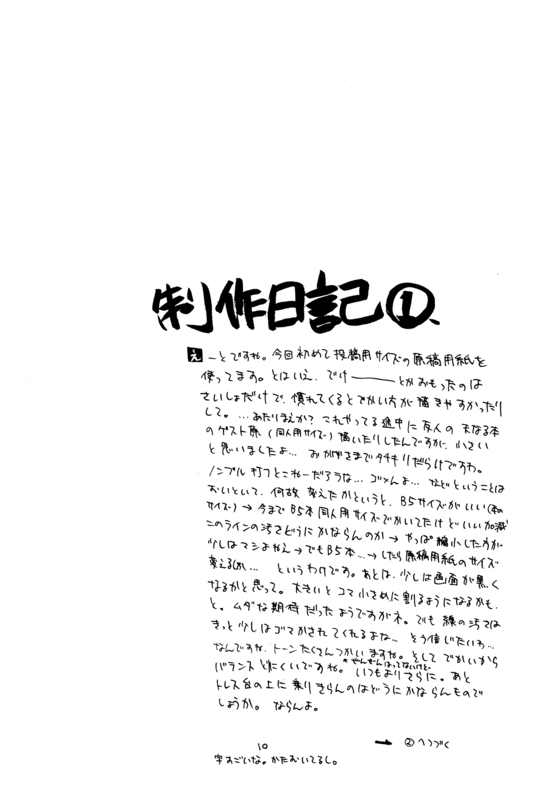 制作日記①、
えーとですね。今回初めて投稿用サイズの原稿用紙を
使ってます。とはいえ、でけ———とかおもったのは
さいしょだけで、慣れてくるとでかい方が描きやすかったり
して。…あたりまえか? これやってる途中に友人のまなる本
のゲスト原(同人用サイズ)描いたりしたんですが、小さい
と思いましたよ… おかげさまでタチキリだらけですわ。
ノンブル打つとこねーだろうな… ゴメんよ… などということは
おいといて、何故変えたかというと、B5サイズがいい(本の
サイズ)→今までB5本同人用サイズでかいてたけどいい加減
このラインの汚さどうにかならんのか→やっぱ縮小した方が
少しはマシよねえ→でもB5本…→したら原稿用紙のサイズ
変えるしか… というわけです。あとは、少しは色面が黒く
なるかと思って。大きいとコマ小さめに割るようになるかも、
と。ムダな期待だったようですがネ。でも線の汚さは
きっと少しはゴマかされてくれるよな… そう信じたいわ…
なんですね、トーンたくさんつかいますね。そしてでかいから
*ぜんぜんはってないけど。
バランスとりにくいですね。いつもよりさらに。あと
トレス台の上に乗りきらんのはどうにかならんもので
しょうか。ならんよ。
10
→ ②へつづく
字すごいな。かたむいてるし。